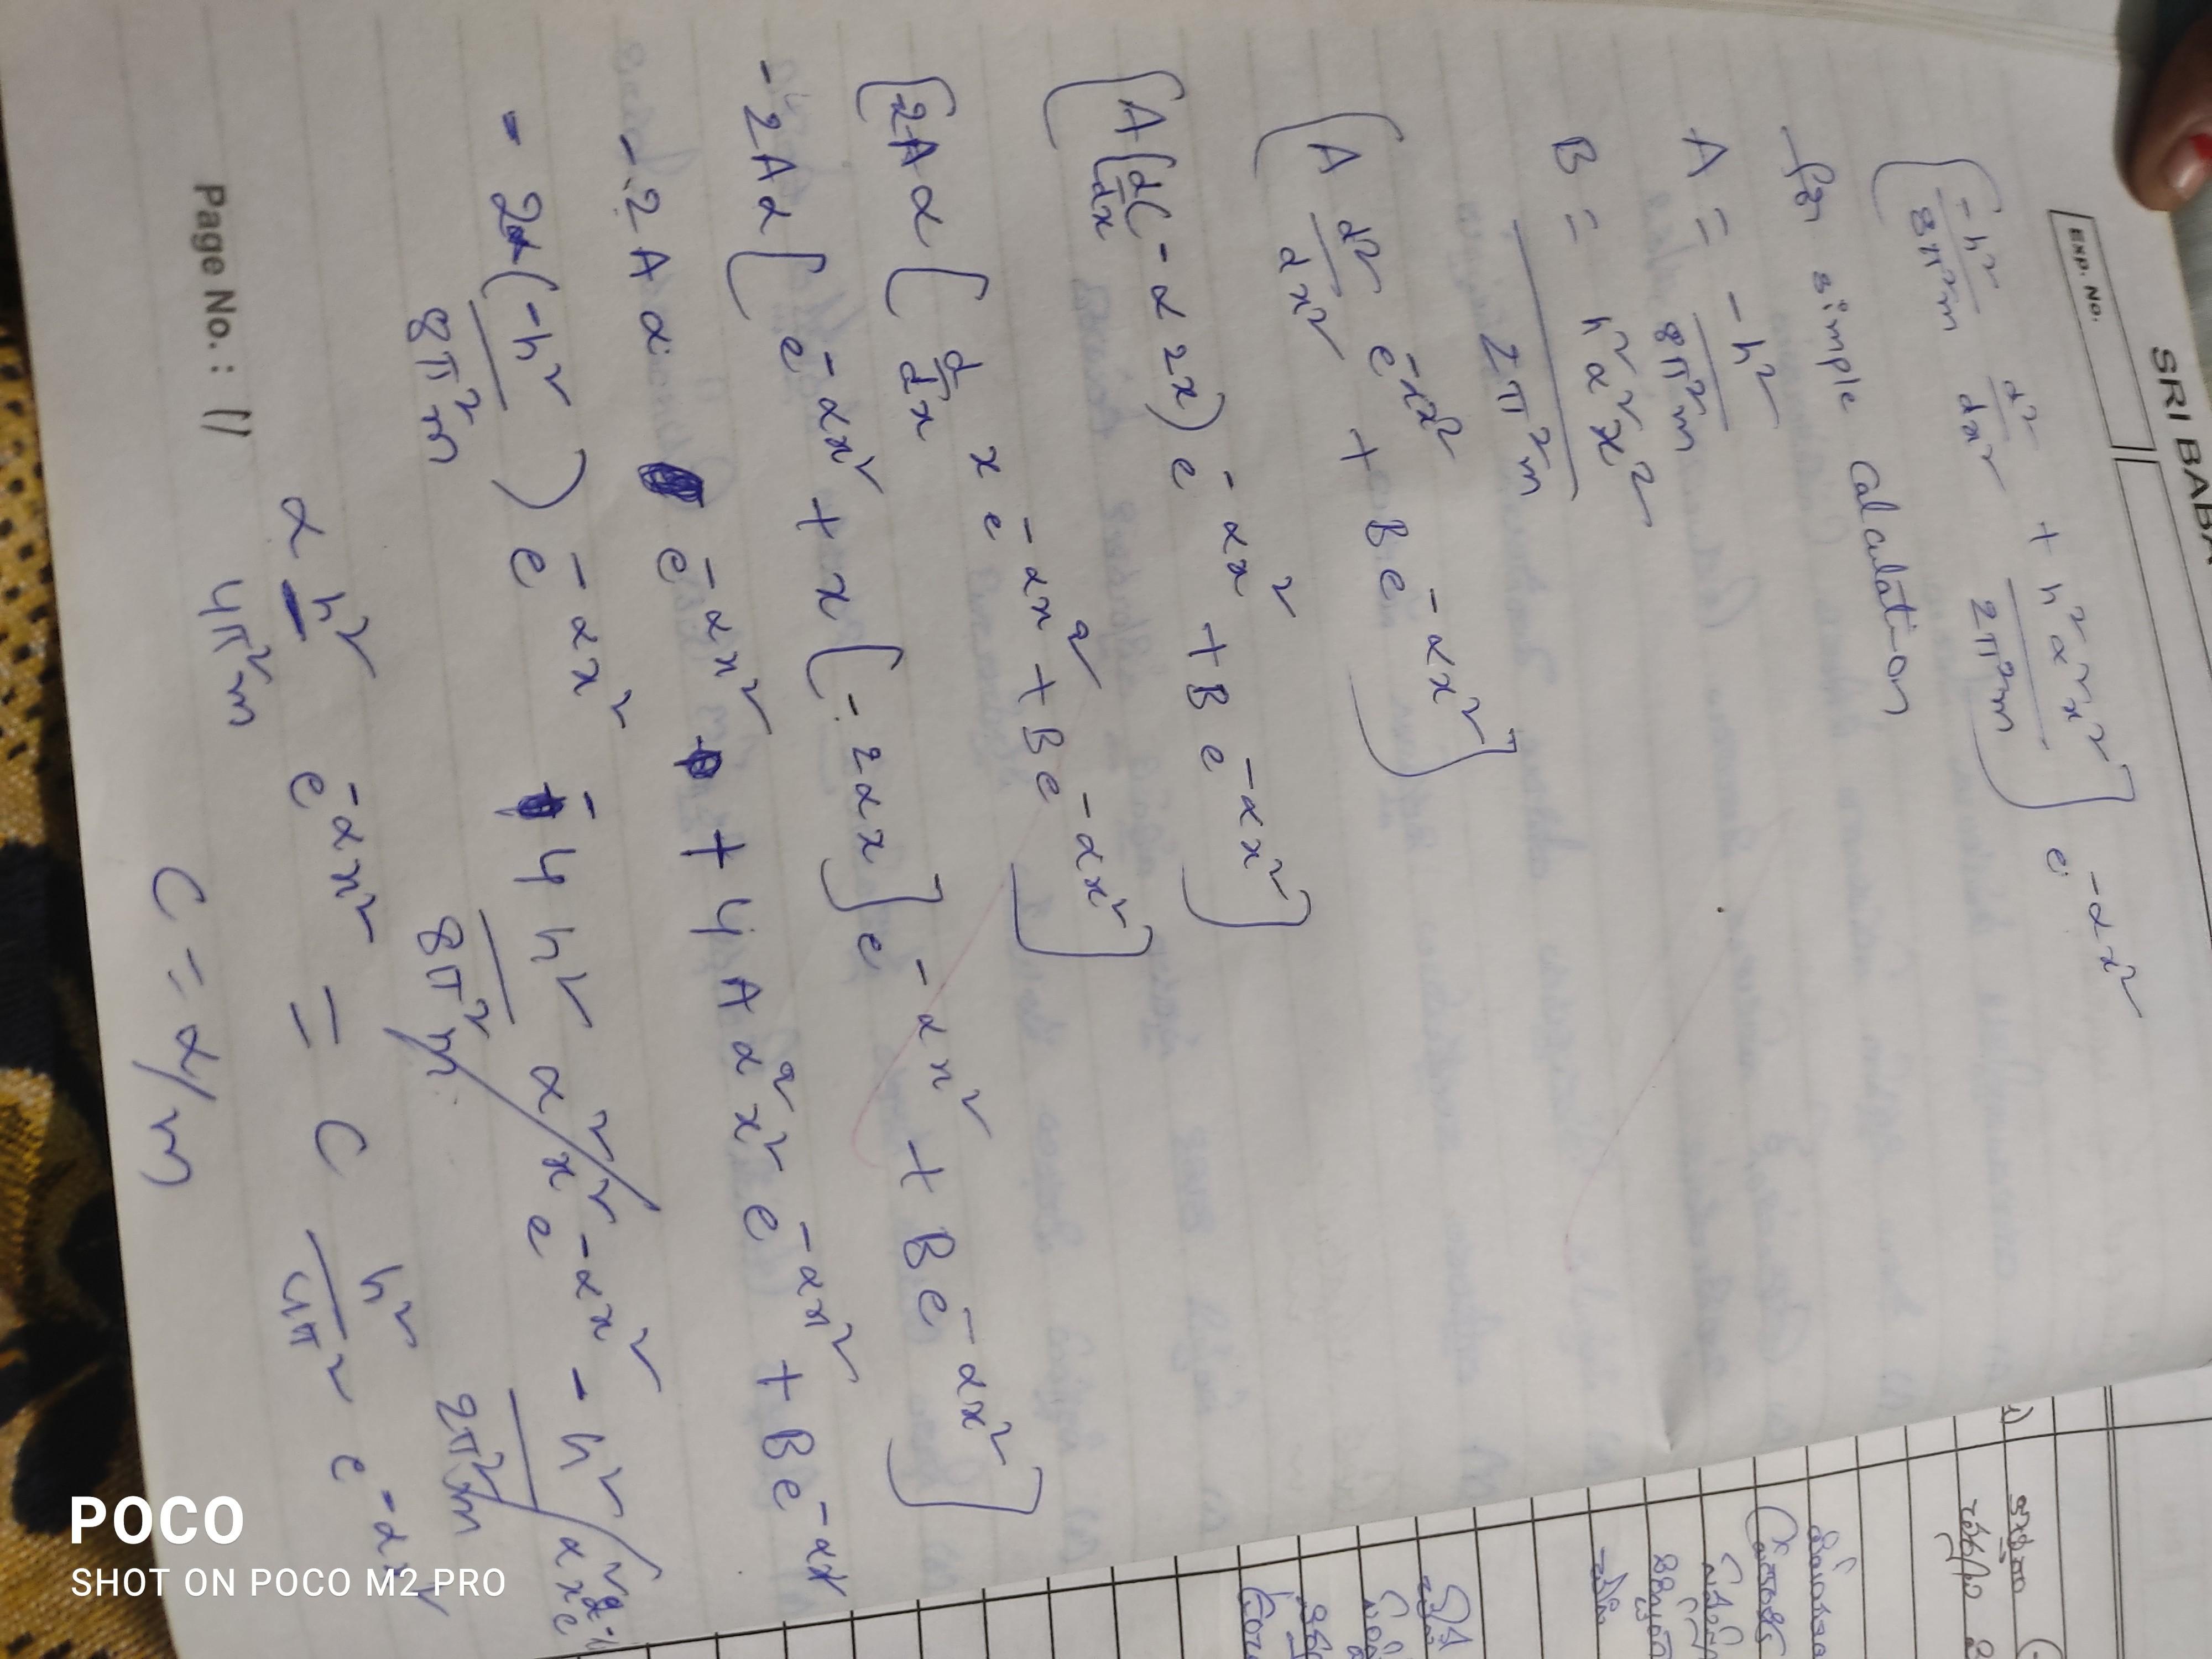 SRI BABA
EXP. NO.
[-h²/8π²m d²/dx² + h²α²x²/2π²m] e^-αx²
for simple Calculation
A = -h²/8π²m
B = h²α²x²/2π²m
[A d²/dx² e^-αx² + Be^-αx²]
[A[d/dx(-α2x)e^-αx² + Be^-αx²]
[2Aα[d/dx x e^-αx² + Be^-αx²]
-2Aα[e^-αx² + x[-2αx]e^-αx² + Be^-αx²]
-2Aα e^-αx² + 4Aα²x² e^-αx² + Be^-αx²
-2α(-h²/8π²m) e^-αx² - 4h²/8π²m α²x² e^-αx² - h²/2π²m α²x² e^-α
αh²/4π²m e^-αx² = C h²/4π² e^-αx²
C = α/m
Page No.: 11
POCO
SHOT ON POCO M2 PRO